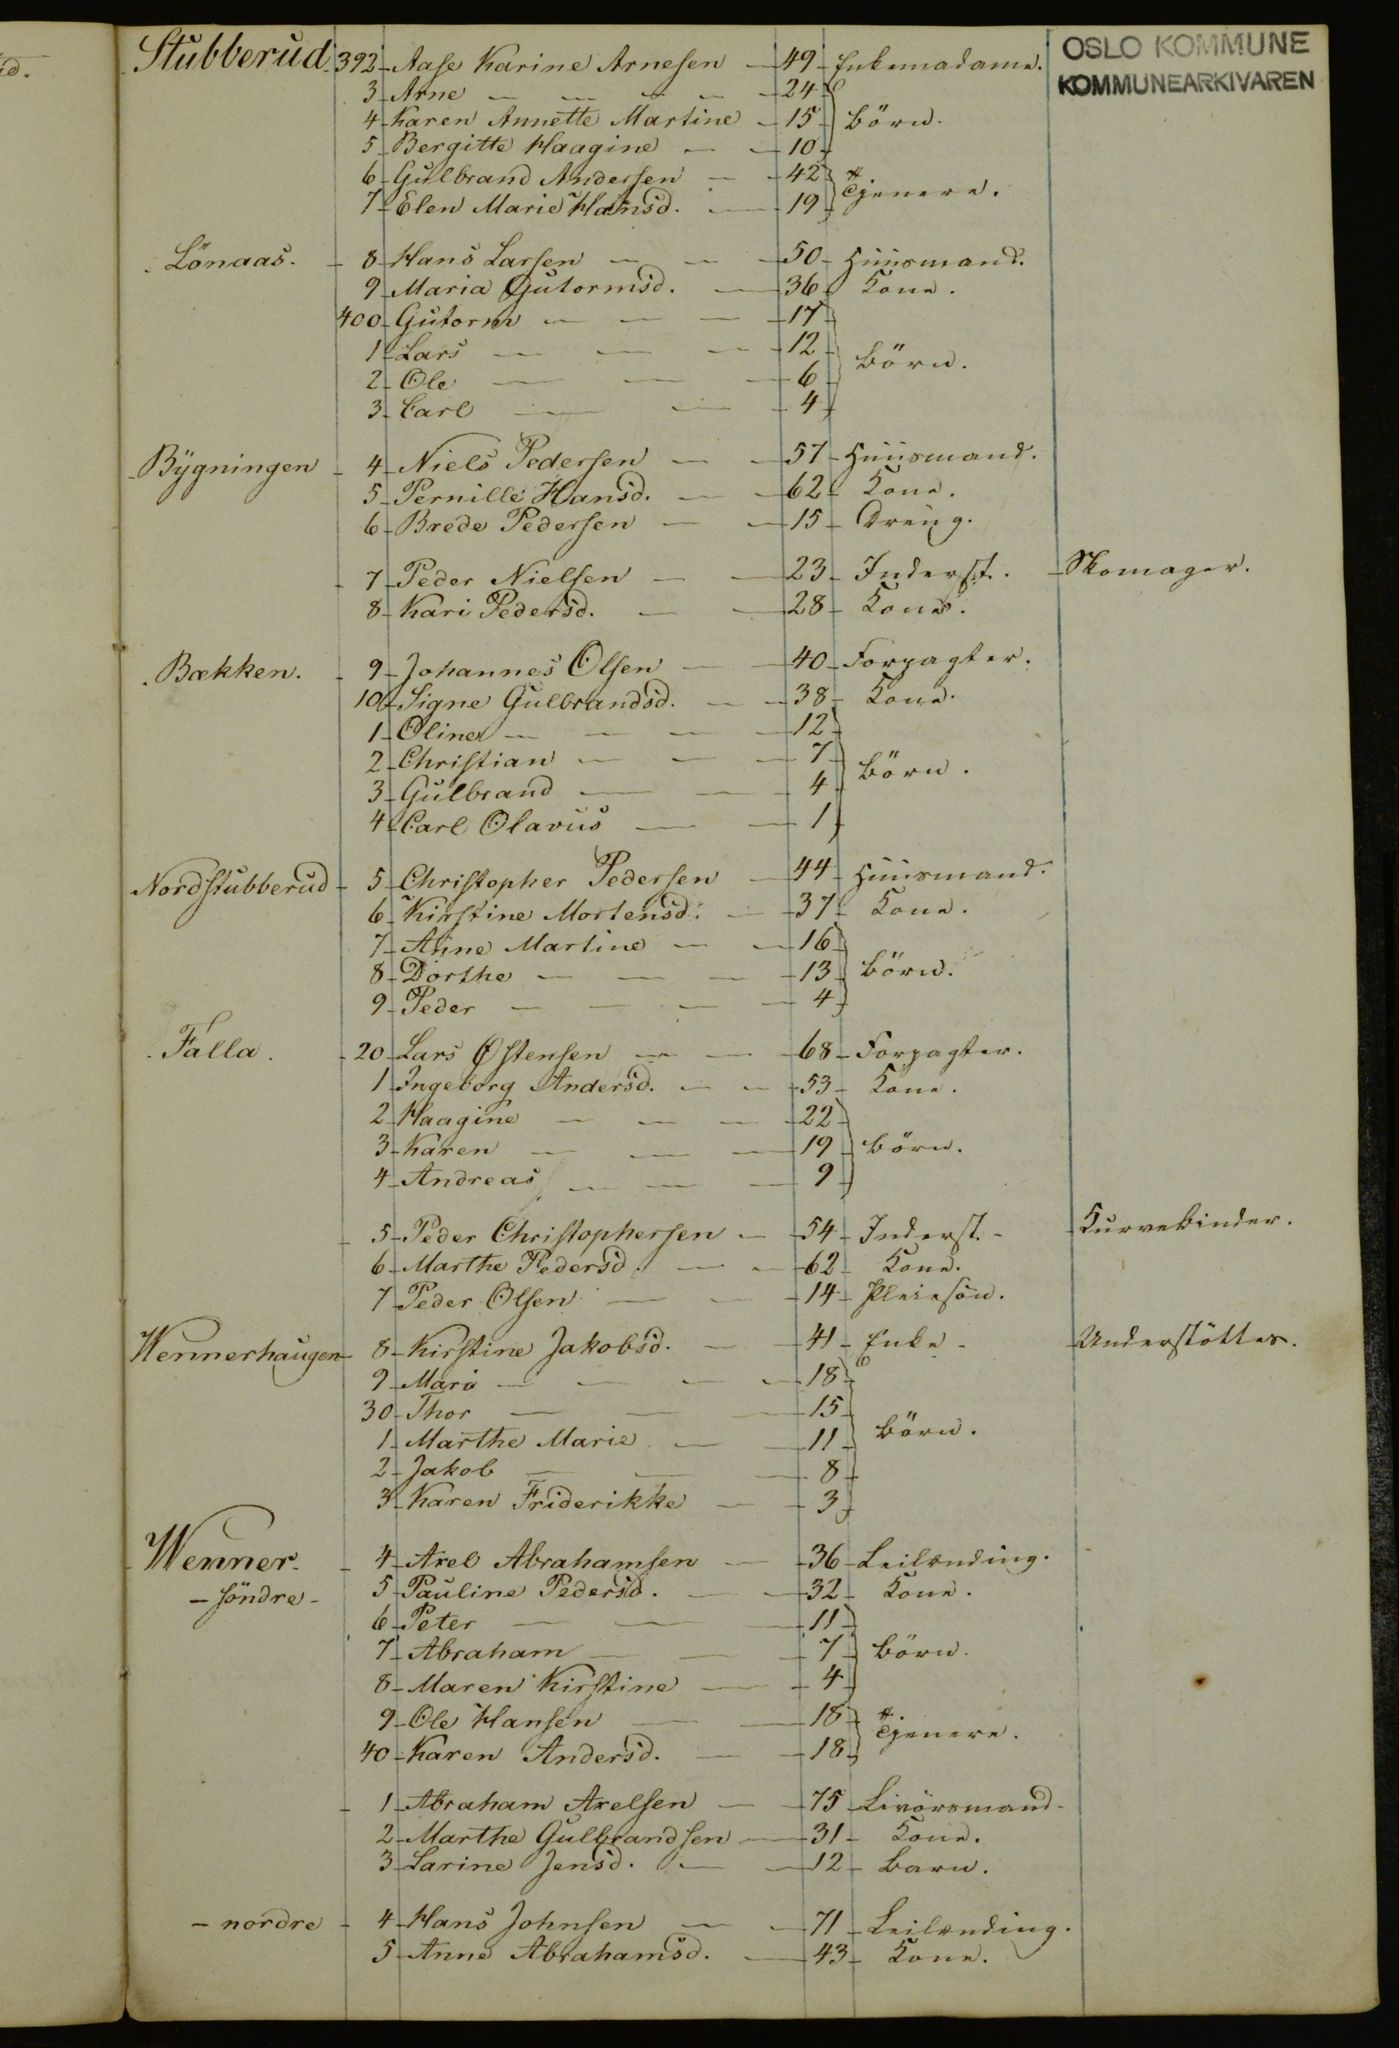 OSLO KOMMUNE
KOMMUNEARKIVAREN
Stubberud. 392 Aase Karine Arnesen 49 Enkemadame.
3 Arne 24
4 Karen Annette Martine 15 Börn.
5 Bergitte Haagine 10
6 Gulbrand Andersen 42
7 Elen Marie Hansd. 19 Tjenere.
Lönaas. 8 Hans Larsen 50 Huusmand.
9 Maria Gutormsd. 36 Kone.
400 Gutorm 17
1 Lars 12 Börn.
2 Ole 6
3 Carl 4
Bygningen 4 Niels Pedersen 57 Huusmand.
5 Pernille Hansd. 62 Kone.
6 Brede Pedersen 15 Dreng.
7 Peder Nielsen 23 Inderst. Skomager.
8 Kari Pedersd. 28 Kone.
Bækken. 9 Johannes Olsen 40 Forpagter.
10 Signe Gulbrandsd. 38 Kone.
1 Oline 12
2 Christian 7 Börn.
3 Gulbrand 4
4 Carl Olavus 1
Nordstubberud 5 Christopher Pedersen 44 Huusmand.
6 Kirstine Mortensd. 37 Kone.
7 Anne Martine 16
8 Dorthe 13 Börn.
9 Peder 4
Falla. 20 Lars Østensen 68 Forpagter.
1 Ingeborg Andersd. 53 Kone.
2 Haagine 22
3 Karen 19 Börn.
4 Andreas 9
5 Peder Christophersen 54 Inderst. Kurvebinder.
6 Marthe Pedersd. 62 Kone.
7 Peder Olsen 14 Pleiesön.
Wennerhaugen 8 Kirstine Jakobsd. 41 Enke Understöttes.
9 Mari 18
30 Thor 15
1 Marthe Marie 11 Börn.
2 Jakob 8
3 Karen Friderikke 3
Wenner. 4 Axel Abrahamsen 36 Leilænding.
söndre 5 Pauline Pedersd. 32 Kone.
6 Peter 11
7 Abraham 7 Börn.
8 Maren Kirstine 4
9 Ole Hansen 18
40 Karen Andersd. 18 Tjenere.
1 Abraham Axelsen 75 Livörsmand
2 Marthe Gulbrandsen 31 Kone.
3 Larine Jensd. 12 Barn.
nordre 4 Hans Johnsen 71 Leilænding.
5 Anne Abrahamsd. 43 Kone.